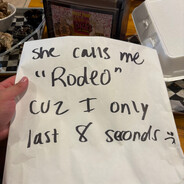 she calls me
"Rodeo"
cuz I only
last 8 seconds :)